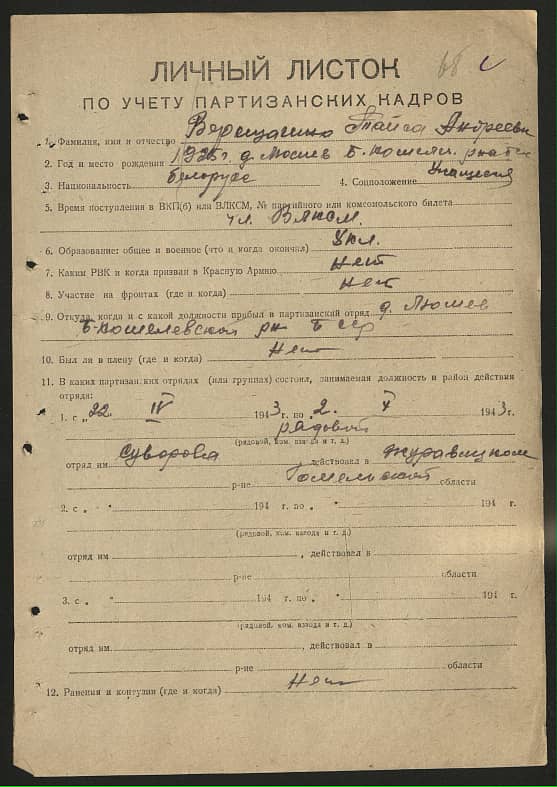 ЛИЧНЫЙ ЛИСТОК
ПО УЧЕТУ ПАРТИЗАНСКИХ КАДРОВ
1. Фамилия, имя и отчество Таиса Андреевн
2. Год и место рождения д. Люшев Б. Кошелев.
3. Национальность белорусс 4. Соцположение учащаяся
5. Время поступления в ВКП(б) или ВЛКСМ, № партийного или комсомольского билета
чл. ВЛКСМ.
6. Образование: общее и военное (что и когда окончил)
7. Каким РВК и когда призван в Красную Армию нет
8. Участие на фронтах (где и когда) нет
9. Откуда, когда и с какой должности прибыл в партизанский отряд д. Люшев
Б-Кошелевский рн
10. Был ли в плену (где и когда) нет
11. В каких партизанских отрядах (или группах) состоял, занимаемая должность и район действия
отряда:
1. с „22. IV 1943 г. по 2. X 1943 г.
рядовой
(рядовой, ком. взвода и т. д.)
отряд им Суворова действовал в Журавицком
р-не Гомельской области
2. с „ “ 194 г. по „ “ 194 г.
(рядовой, ком. взвода и т. д.)
отряд им , действовал в
р-не области
3. с „ “ 194 г. по „ “ 194 г.
(рядовой, ком. взвода и т. д.)
отряд им. , действовал в
р-не области
12. Ранения и контузии (где и когда) нет